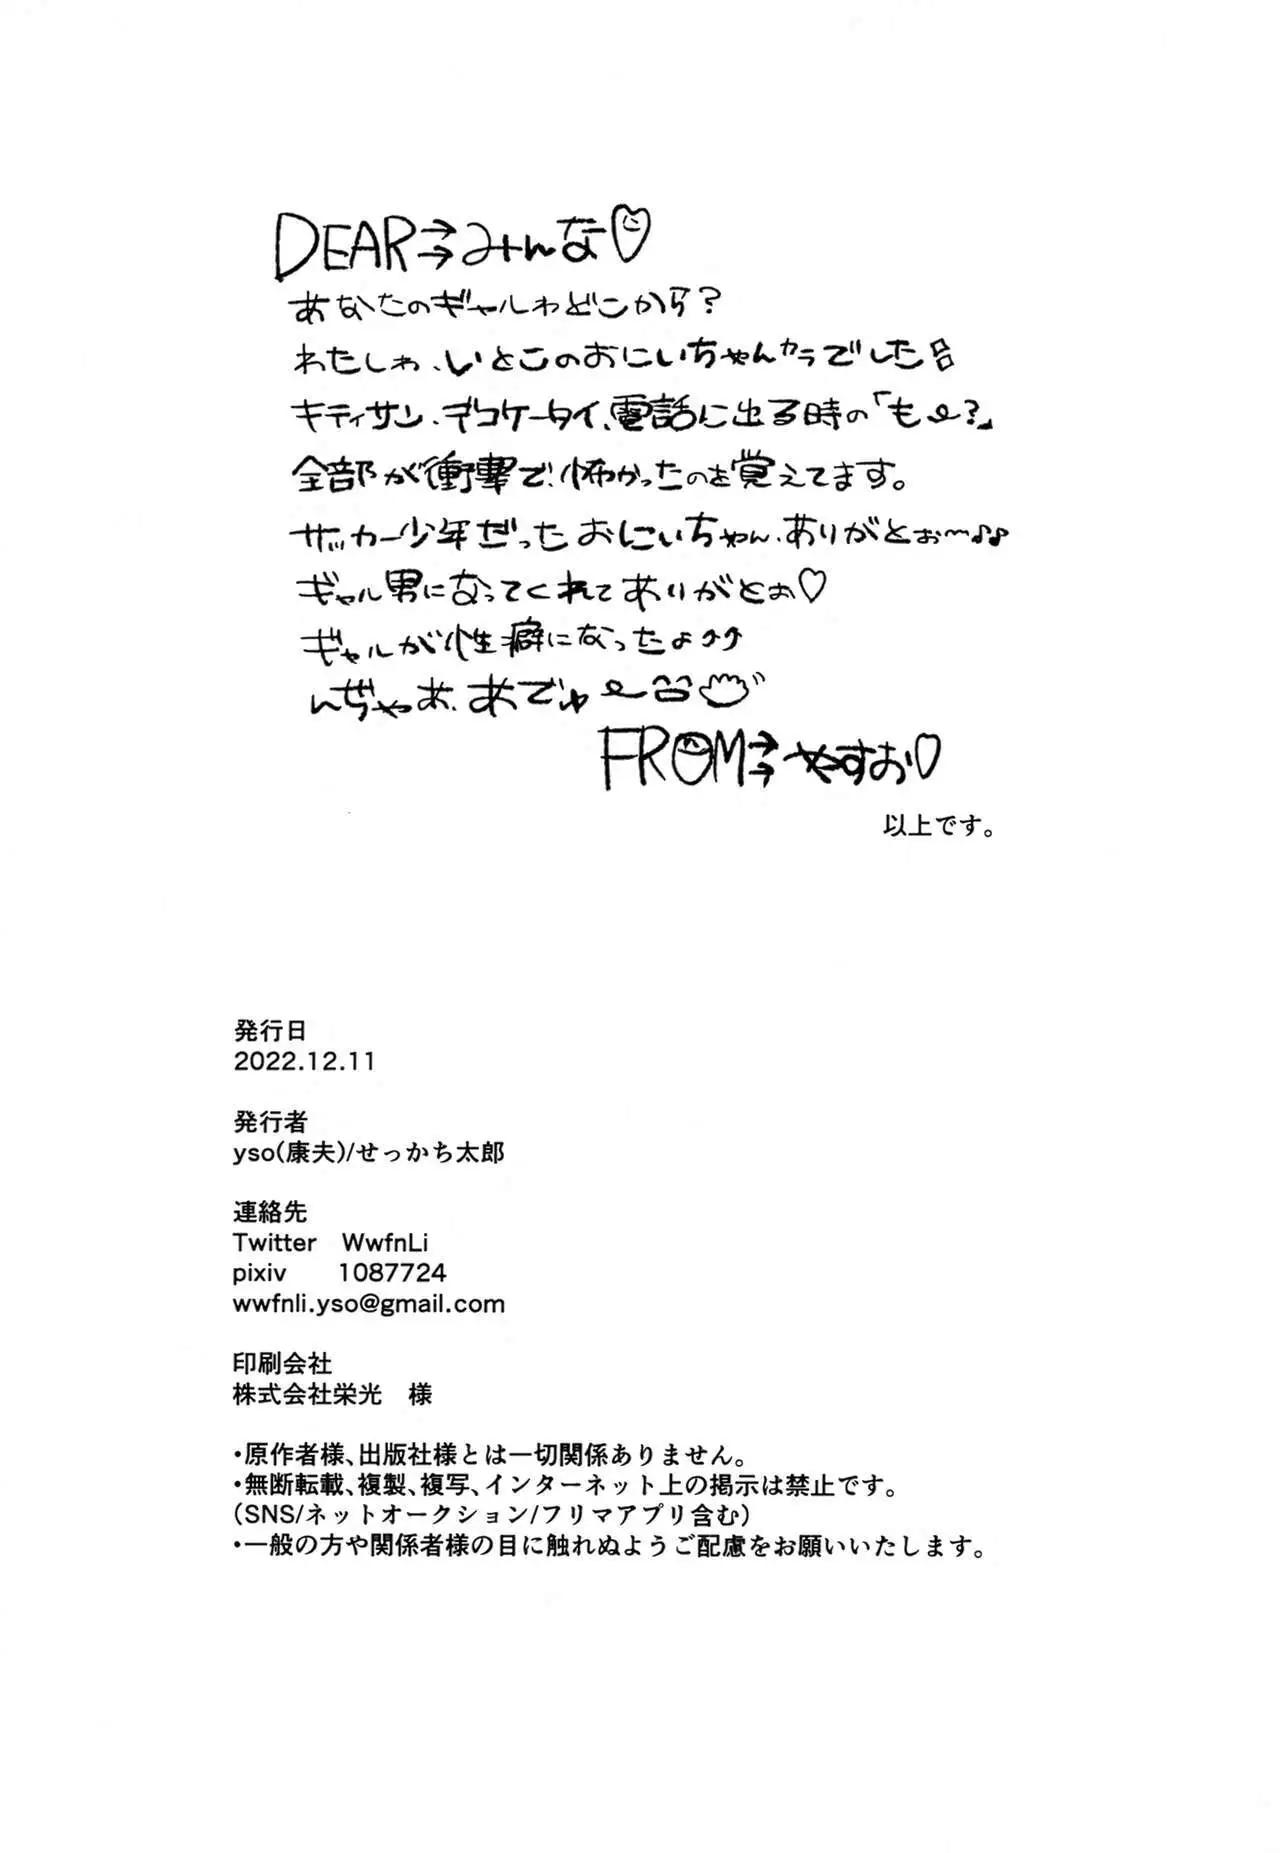 DEAR→→みんな♡
あなたのギャルわどこから?
わたしゎ、いとこのおにいちゃんカラでした
キティサン、デコケータイ、電話に出る時の「もㄟ?」
全部が衝撃で、怖かったのを覚えてます。
サッカー少年だったおにいちゃん、ありがとぉ〜♪♪
ギャル男になってくれてありがとぉ♡
ギャルが性癖になったよ⤴⤴
んぢゃあ、あでゅ〜
FROM→→やすお♡
以上です。
発行日
2022.12.11
発行者
yso(康夫)/せっかち太郎
連絡先
Twitter WwfnLi
pixiv 1087724
wwfnli.yso@gmail.com
印刷会社
株式会社栄光 様
・原作者様、出版社様とは一切関係ありません。
・無断転載、複製、複写、インターネット上の掲示は禁止です。
(SNS/ネットオークション/フリマアプリ含む)
・一般の方や関係者様の目に触れぬようご配慮をお願いいたします。